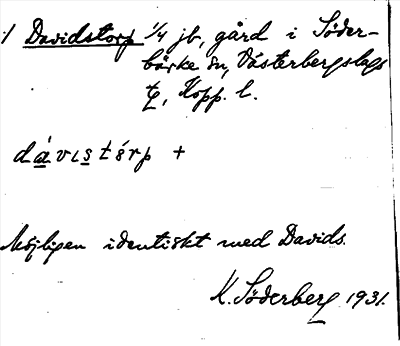 :1 Davidstorp 1/4 jb, gård i Söder-
bärke sn, Västerbergslags
tg, Kopp. l.
dávıstórp +
Möjligen identiskt med Davids.
K. Söderberg 1931.